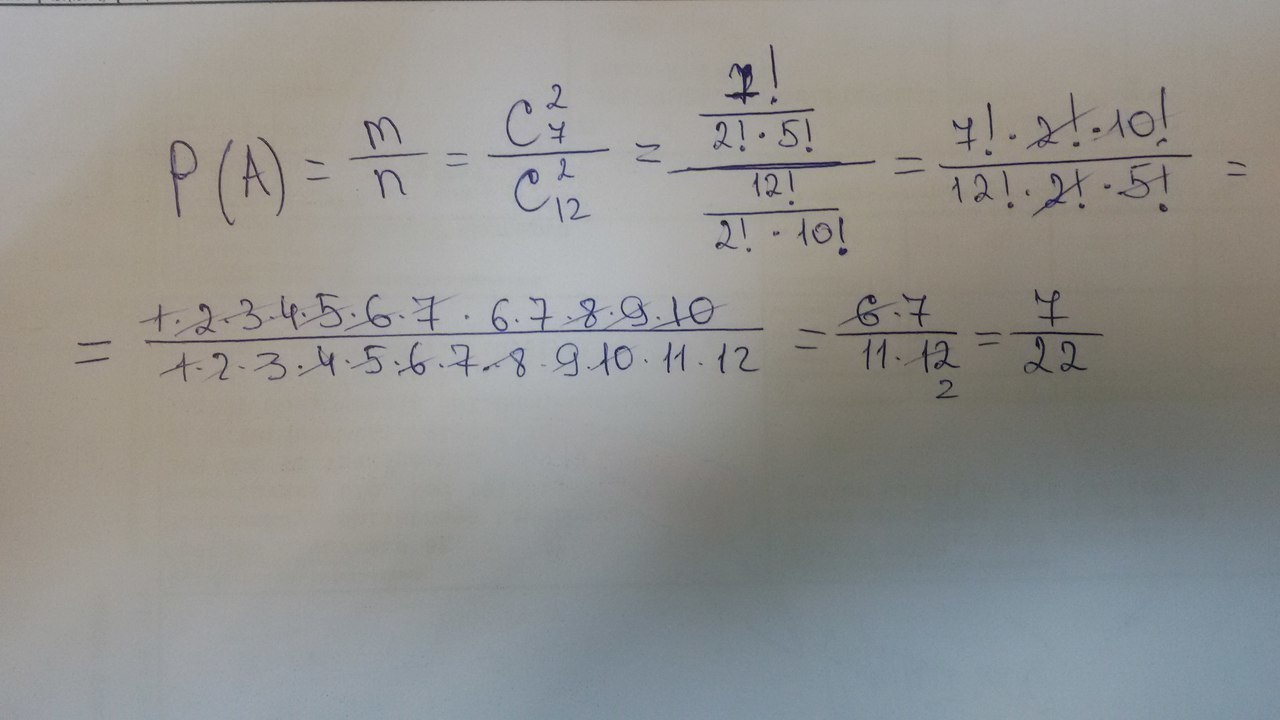 P(A) = m/n = C₇²/C₁₂² = (7!/(2! · 5!))/(12!/(2! · 10!)) = (7! · 2! · 10!)/(12! · 2! · 5!) =
= (1·2·3·4·5·6·7 · 6·7·8·9·10)/(1·2·3·4·5·6·7·8·9·10·11·12) = (6·7)/(11·12) = 7/22
2